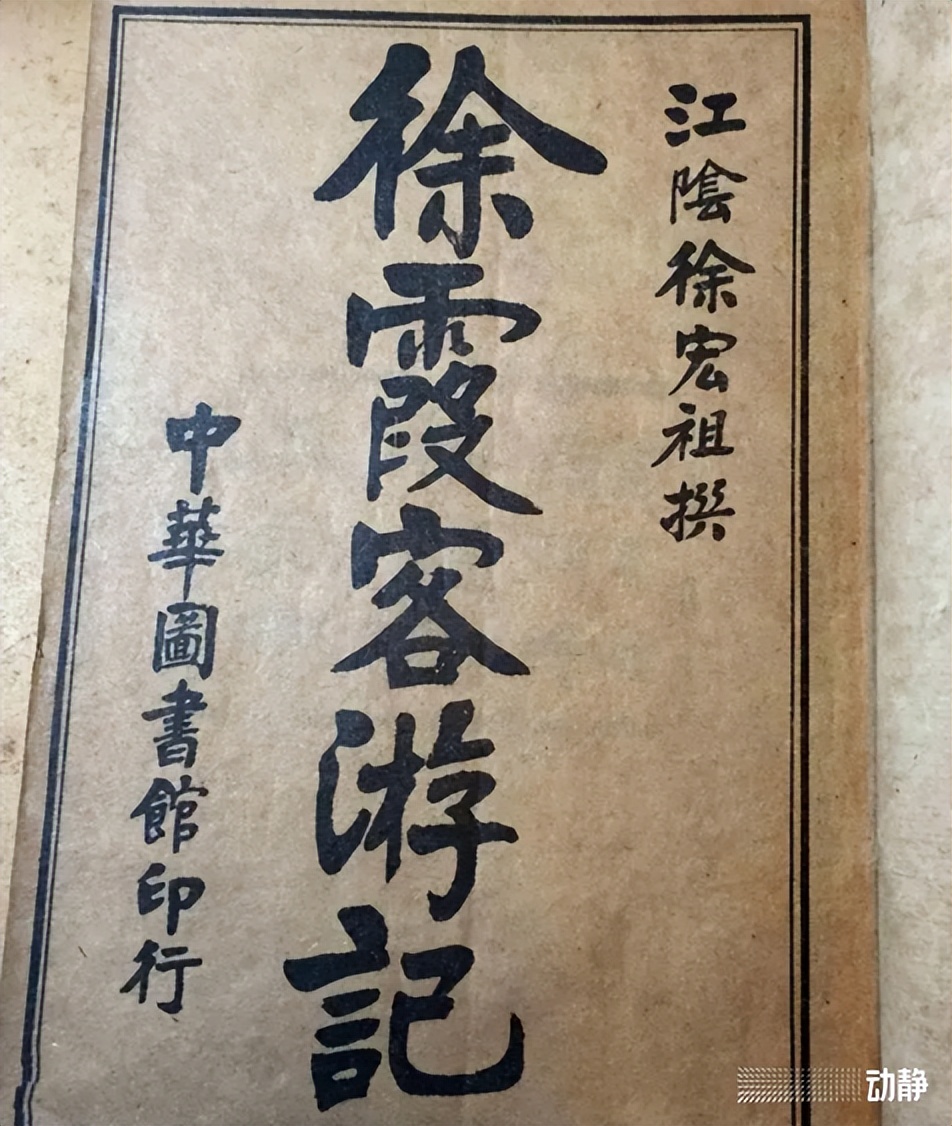 江陰徐宏祖撰
徐霞客游記
中華圖書館印行
动静